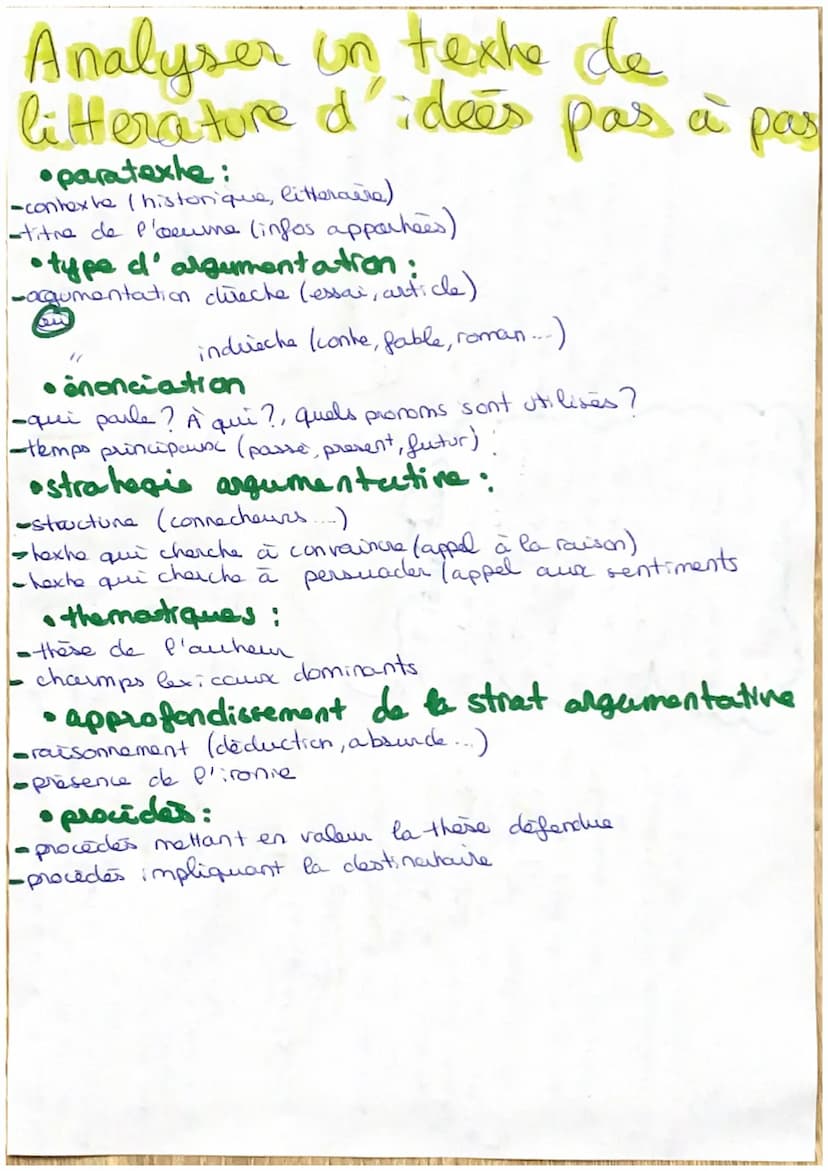 Analyser un texte de
litterature d'ideés pas à pas
• paratexte :
- contexte (historique, litteraire)
- titre de l'oeuvre (infos apportées)
• type d'argumentation :
- agumentation directe (essai, article)
ou
" indirecte (conte, fable, roman...)
• énonciation
- qui parle ? À qui ?, quels pronoms sont utilisés ?
- temps principaux (passé, present, futur) :
• strategie argumentative :
- structure (connecteurs ...)
- texte qui cherche à convaincre (appel à la raison)
- texte qui cherche à persuader (appel aux sentiments
• thematiques :
- thèse de l'auteur
- champs lexicaux dominants
• approfondissement de la strat argumentative
- raisonnement (déduction, absurde ...)
- présence de l'ironie
• procédés :
- procédés mettant en valeur la thèse défendue
- procédés impliquant la destinataire